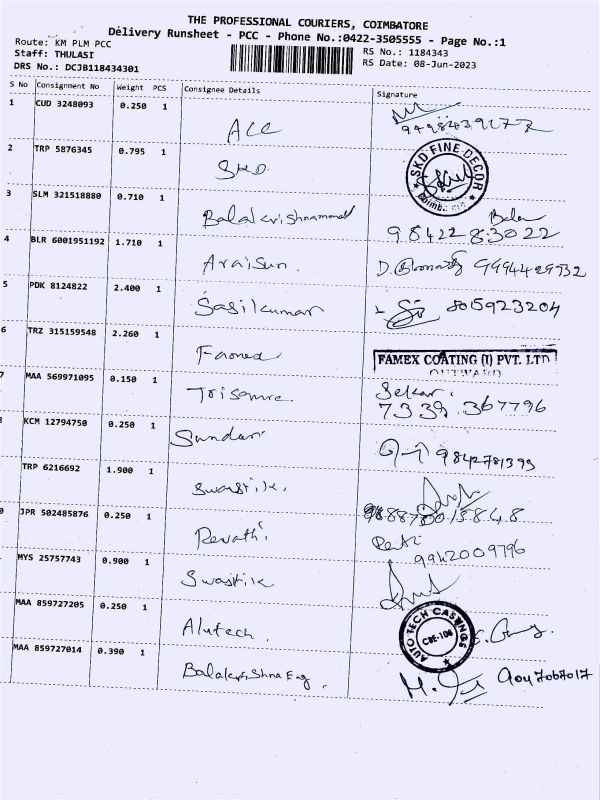 THE PROFESSIONAL COURIERS, COIMBATORE
Delivery Runsheet - PCC - Phone No.:0422-3505555 - Page No.:1
Route: KM PLM PCC
Staff: THULASI
DRS No.: DCJB118434301
RS No.: 1184343
RS Date: 08-Jun-2023
S No Consignment No Weight PCS Consignee Details Signature
1 CUD 3248093 0.250 1 ACC
2 TRP 5876345 0.795 1 SKD SKD-FINE-DECOR
3 SLM 321518880 0.710 1 Balakrishnammal Bala
98422 83022
4 BLR 6001951192 1.710 1 Araisun. 9994429932
5 PDK 8124822 2.400 1 Sasikumar 8015923204
6 TRZ 315159548 2.260 1 Famex FAMEX COATING (I) PVT. LTD
OUTWARD
7 MAA 569971095 0.150 1 Selkar.
7339 367796
KCM 12794750 0.250 1 Sundari 9842781399
TRP 6216692 1.900 1 Swastik.
0 JPR 502485876 0.250 1 Revathi
9942009796
MYS 25757743 0.900 1 Swastik
MAA 859727205 0.250 1 Alutech. AUTO TECH CASTINGS
CBE-106
MAA 859727014 0.390 1 Balakrishna Eng. 9047067017